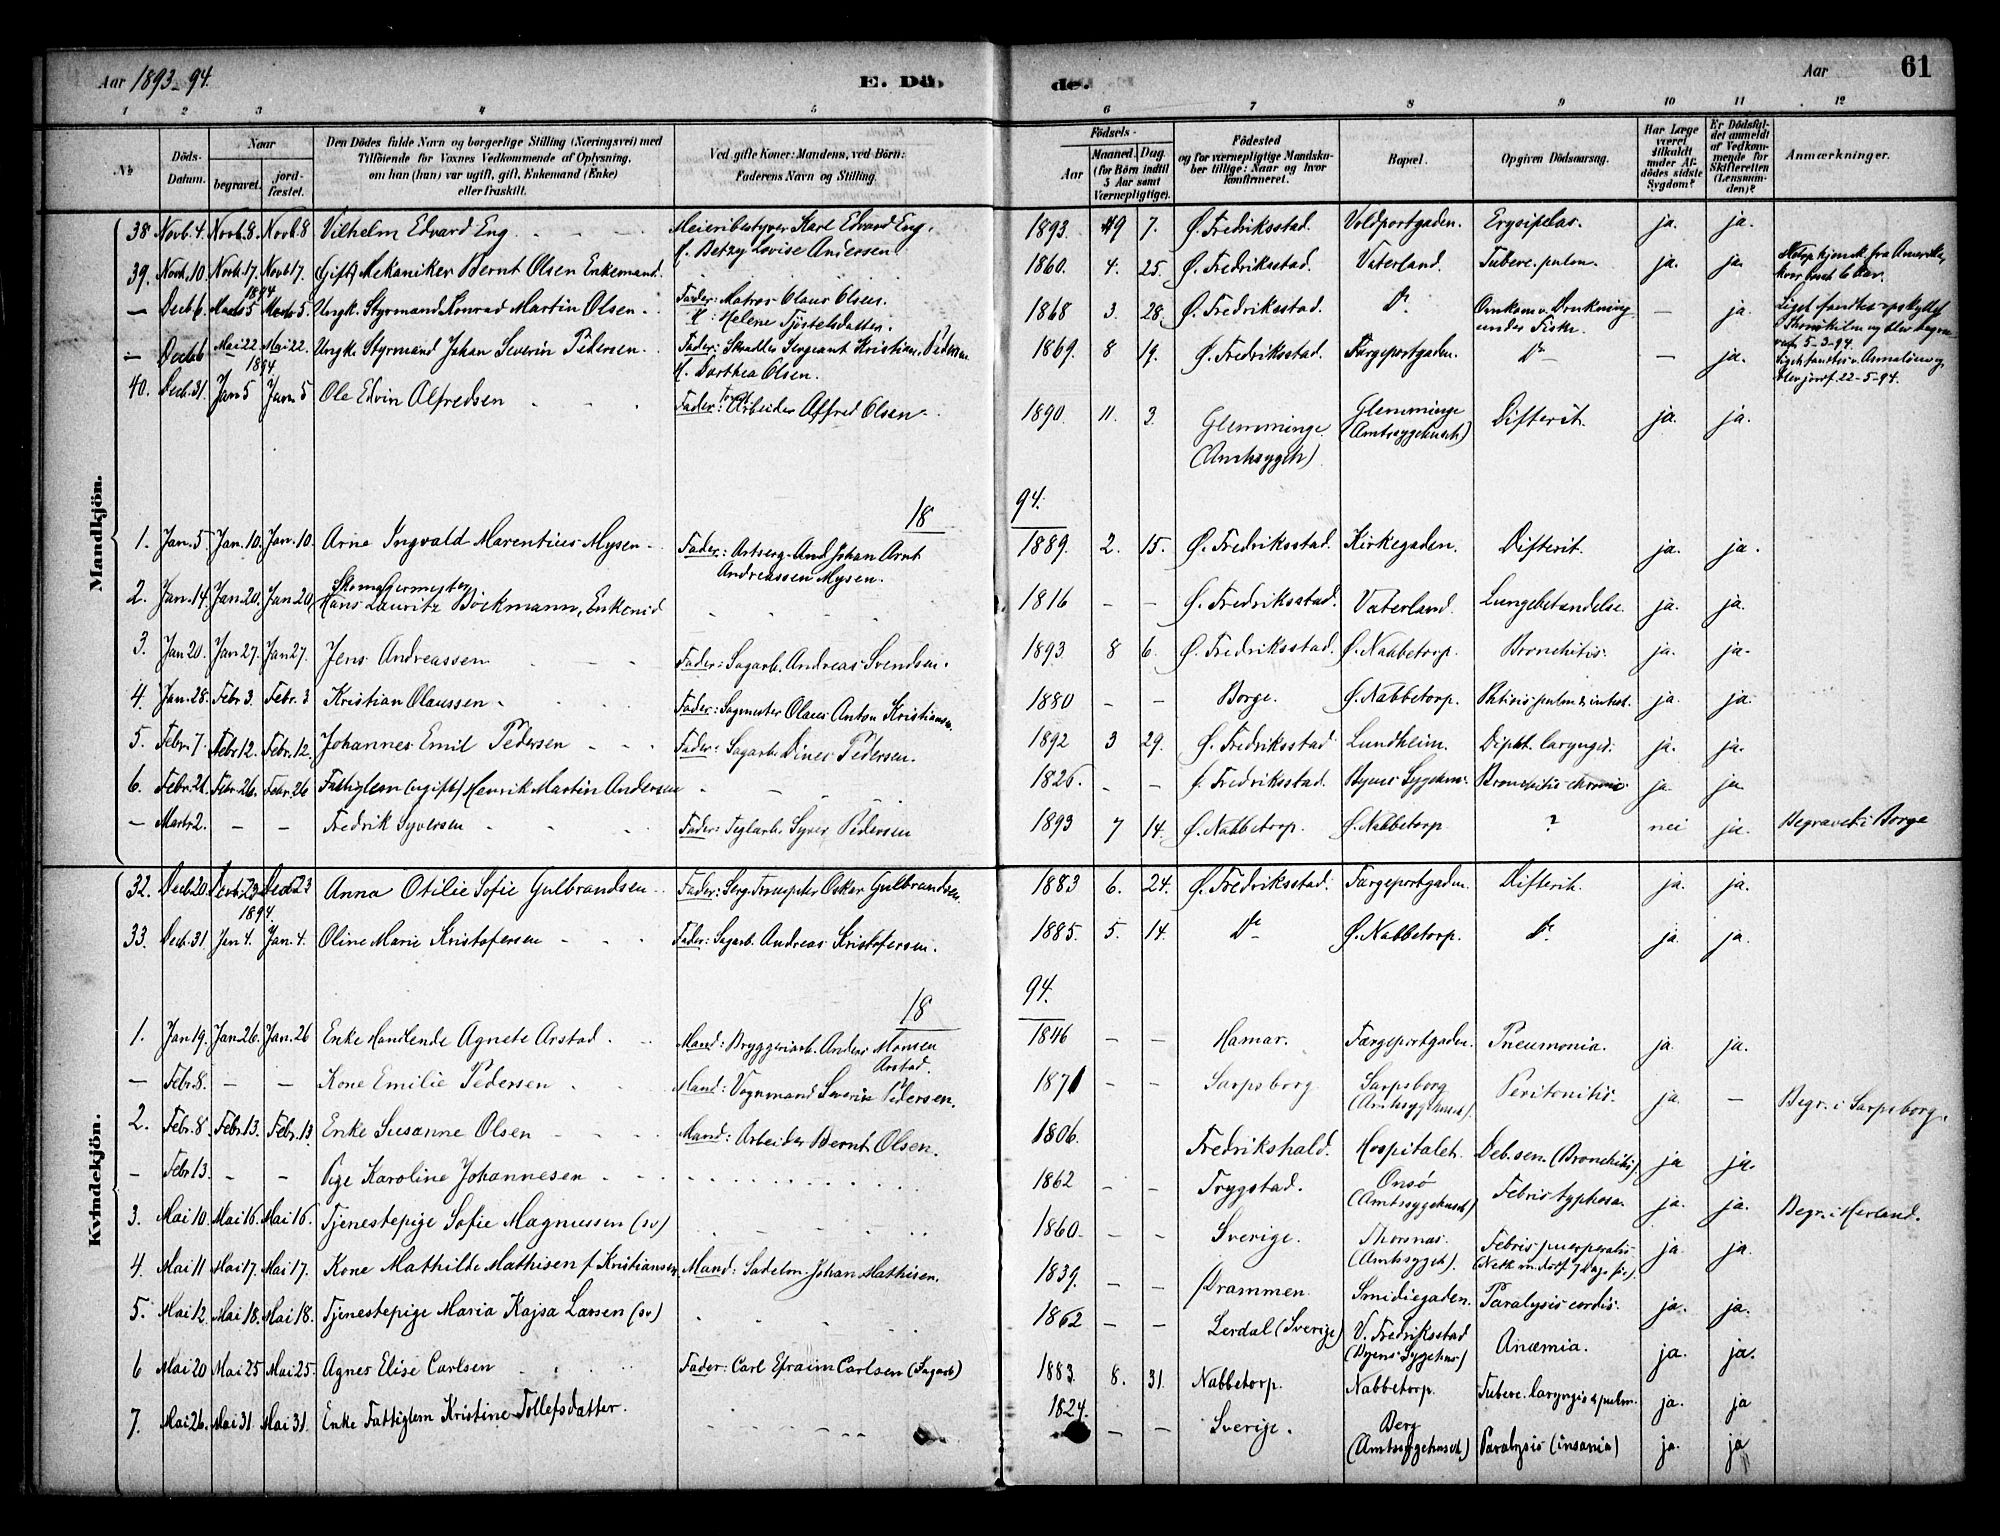 Aar 1893-94. E. Dö- de. Aar 61
1 2 3 4 5 6 7 8 9 10 11 12
No Döds-Datum. Naar begravet. jordfæstet. Den Dödes fulde Navn og borgerlige Stilling (Næringsvei) med Tilföiende for Voxnes Vedkommende af Oplysning, om han (hun) var ugift, gift, Enkemand (Enke) eller fraskilt. Ved gifte Koner: Mandens, ved Börn: Faderens Navn og Stilling. Födsels- Aar Maaned. Dag. (for Börn indtil 5 Aar samt Værnepligtige). Födested og for værnepligtige Mandskaber tillige: Naar og hvor konfirmeret. Bopæl. Opgiven Dödsaarsag. Har Læge været tilkaldt under Afdödes sidste Sygdom? Er Dödsfaldet anmeldt af Vedkommende for Skifteretten (Lensmanden)? Anmærkninger.
Mandkjön.
38 Novb. 4. Novb. 8. Novb. 8 Vilhelm Edvard Eng Meieribestyrer Karl Edvard Eng. 1893. 9 7. Ø. Fredriksstad. Voldportgaden. Erysipelas. ja. ja.
M. Betzy Lovise Andersen
39. Novb. 10 Novb. 17. Novb. 17. (Gift) Mekaniker Bernt Olsen Enkemand. 1860. 4. 25. Ø. Fredriksstad. Vaterland. Tuberc. pulm. ja. ja. fra Amerika,
1894
— Decb. 6. Marts 5 Marts 5. Ungk. Styrmand Konrad Martin Olsen Fader: Matros Claus Olsen. 1868 3. 28. Ø. Fredriksstad. Do Omkom v. Drukning under Fiske. — ja. Liget fandtes opskyllet
M: Helene Tjöstelsdatter. blev begravet 5-3-94.
— Decb. 6 Mai 22. Mai 22. Ungk. Styrmand Johan Severin Pedersen Fader: Skrædder Sergeant Kristian Pedersen 1869. 8 19. Ø. Fredriksstad. Færgeportgaden. Do — ja.
1894 M. Dorthea Olsen. blev jordf. 22-5-94.
40. Decb. 31. Jan 5 Jan. 5 Ole Edvin Alfredsen Fader: Arbeider Alfred Olsen 1890. 11. 3. Glemminge (Amtssygeh). Glemminge (Amtssygehuset) Difterit. ja. ja.
18 94.
1. Jan. 5 Jan. 10. Jan. 10. Arne Ingvald Marentius Mysen Fader: And. Johan Arnt Andreassen Mysen. 1889. 2. 15. Ø. Fredriksstad. Kirkegaden. Difterit. ja. ja.
2. Jan. 14. Jan. 20. Jan. 20. Skomagermester Hans Lauritz Böckmann, Enkemd 1816 — — Ø. Fredriksstad. Vaterland. Lungebetændelse. ja. ja.
3. Jan 20. Jan 27. Jan 27. Jens Andreassen Fader: Sagarb. Andreas Svendsen. 1893 8 6. Ø. Fredriksstad. Ø. Nabbetorp. Bronchitis. ja. ja.
4. Jan. 28. Febr. 3 Febr. 3 Kristian Olaussen Fader: Sagmester Olaus Anton Kristiansen 1880 — — Borge. Ø. Nabbetorp. Phtisis pulm & intest. ja. ja.
5. Febr. 7. Febr. 12. Febr. 12. Johannes Emil Pedersen Fader: Sagarb. Dines Pedersen. 1892 3 29. Ø. Fredriksstad. Lundheim. Dipht. laryngis. ja. ja.
6. Febr. 21. Febr. 26. Febr. 26 Fattiglem (ugift) Henrik Martin Andersen 1826. — — Ø. Fredriksstad. Byens Sygehus. Bronchitis chronic ja ja.
— Marts 2. — — Fredrik Syversen Fader: Teglarb. Syver Pedersen 1893 7 14. Ø. Nabbetorp. Ø. Nabbetorp ? nei ja. Begravet i Borge
Kvindekjön.
32. Decb. 20. Decb. 23 Decb. 23 Anna Otilie Sofie Gulbrandsen Fader: Serg. Trompeter Oskar Gulbrandsen. 1883 6. 24. Ø. Fredriksstad. Færgeportgaden. Difterit. ja. ja.
1894
33. Decb. 31. Jan 4. Jan. 4. Oline Marie Kristofersen Fader: Sagarb. Andreas Kristofersen. 1885. 5. 14. Do Ø. Nabbetorp. Do ja. ja.
18 94.
1. Jan 19. Jan 26. Jan. 26 Enke Handlende Agnete Arstad. Mand: Bryggeriarb. Anders Monsen Arstad. 1846 — — Hamar. Færgeportgaden. Pneumonia. ja. ja.
— Febr. 8. — — Kone Emilie Pedersen Mand: Vognmand Severin Pedersen. 1871 — — Sarpsborg Sarpsborg (Amtssygehuset). Peritonitis. ja. — Begr. i Sarpsborg.
2. Febr. 8 Febr. 13. Febr. 13 Enke Susanne Olsen Mand: Arbeider Bernt Olsen. 1806. Fredrikshald. Hospitalet. Deb. sen. (Bronchitis). ja ja.
— Febr. 13. — — Pige Karoline Johannesen 1862 — — Trygstad. Onsö (Amtssygehuset) Febris typhosa. ja. ja. Begr. i Herland.
3. Mai 10. Mai 16. Mai 16. Tjenestepige Sofie Magnussen (sv) 1860. — — Sverige. Thorsnæs (Amtssygeh). Febris puerperalis. ja. ja.
4. Mai 11 Mai 17. Mai 17. Kone Mathilde Mathisen f. Kristiansen Mand: Sadelm. Johan Mathisen. 1839. — — Drammen Smidiegaden. Paralysis cordis. ja. ja.
5. Mai 12. Mai 18. Mai 18. Tjenestepige Maria Kajsa Larsen (sv) 1862 — — Lerdal (Sverige) V. Fredriksstad (Byens Sygehus) Anæmia. ja. ja.
6 Mai 20 Mai 25 Mai 25. Agnes Elise Carlsen Fader: Carl Efraim Carlsen (Sagarb) 1883. 8. 31. Nabbetorp. Nabbetorp. Tuberc. laryngis & pulm. ja. ja
7. Mai 26. Mai 31. Mai 31. Enke Fattiglem Kristine Tollefsdatter. 1824. — — Sverige. Berg (Amtssygehuset) Paralysis (insania) ja. ja